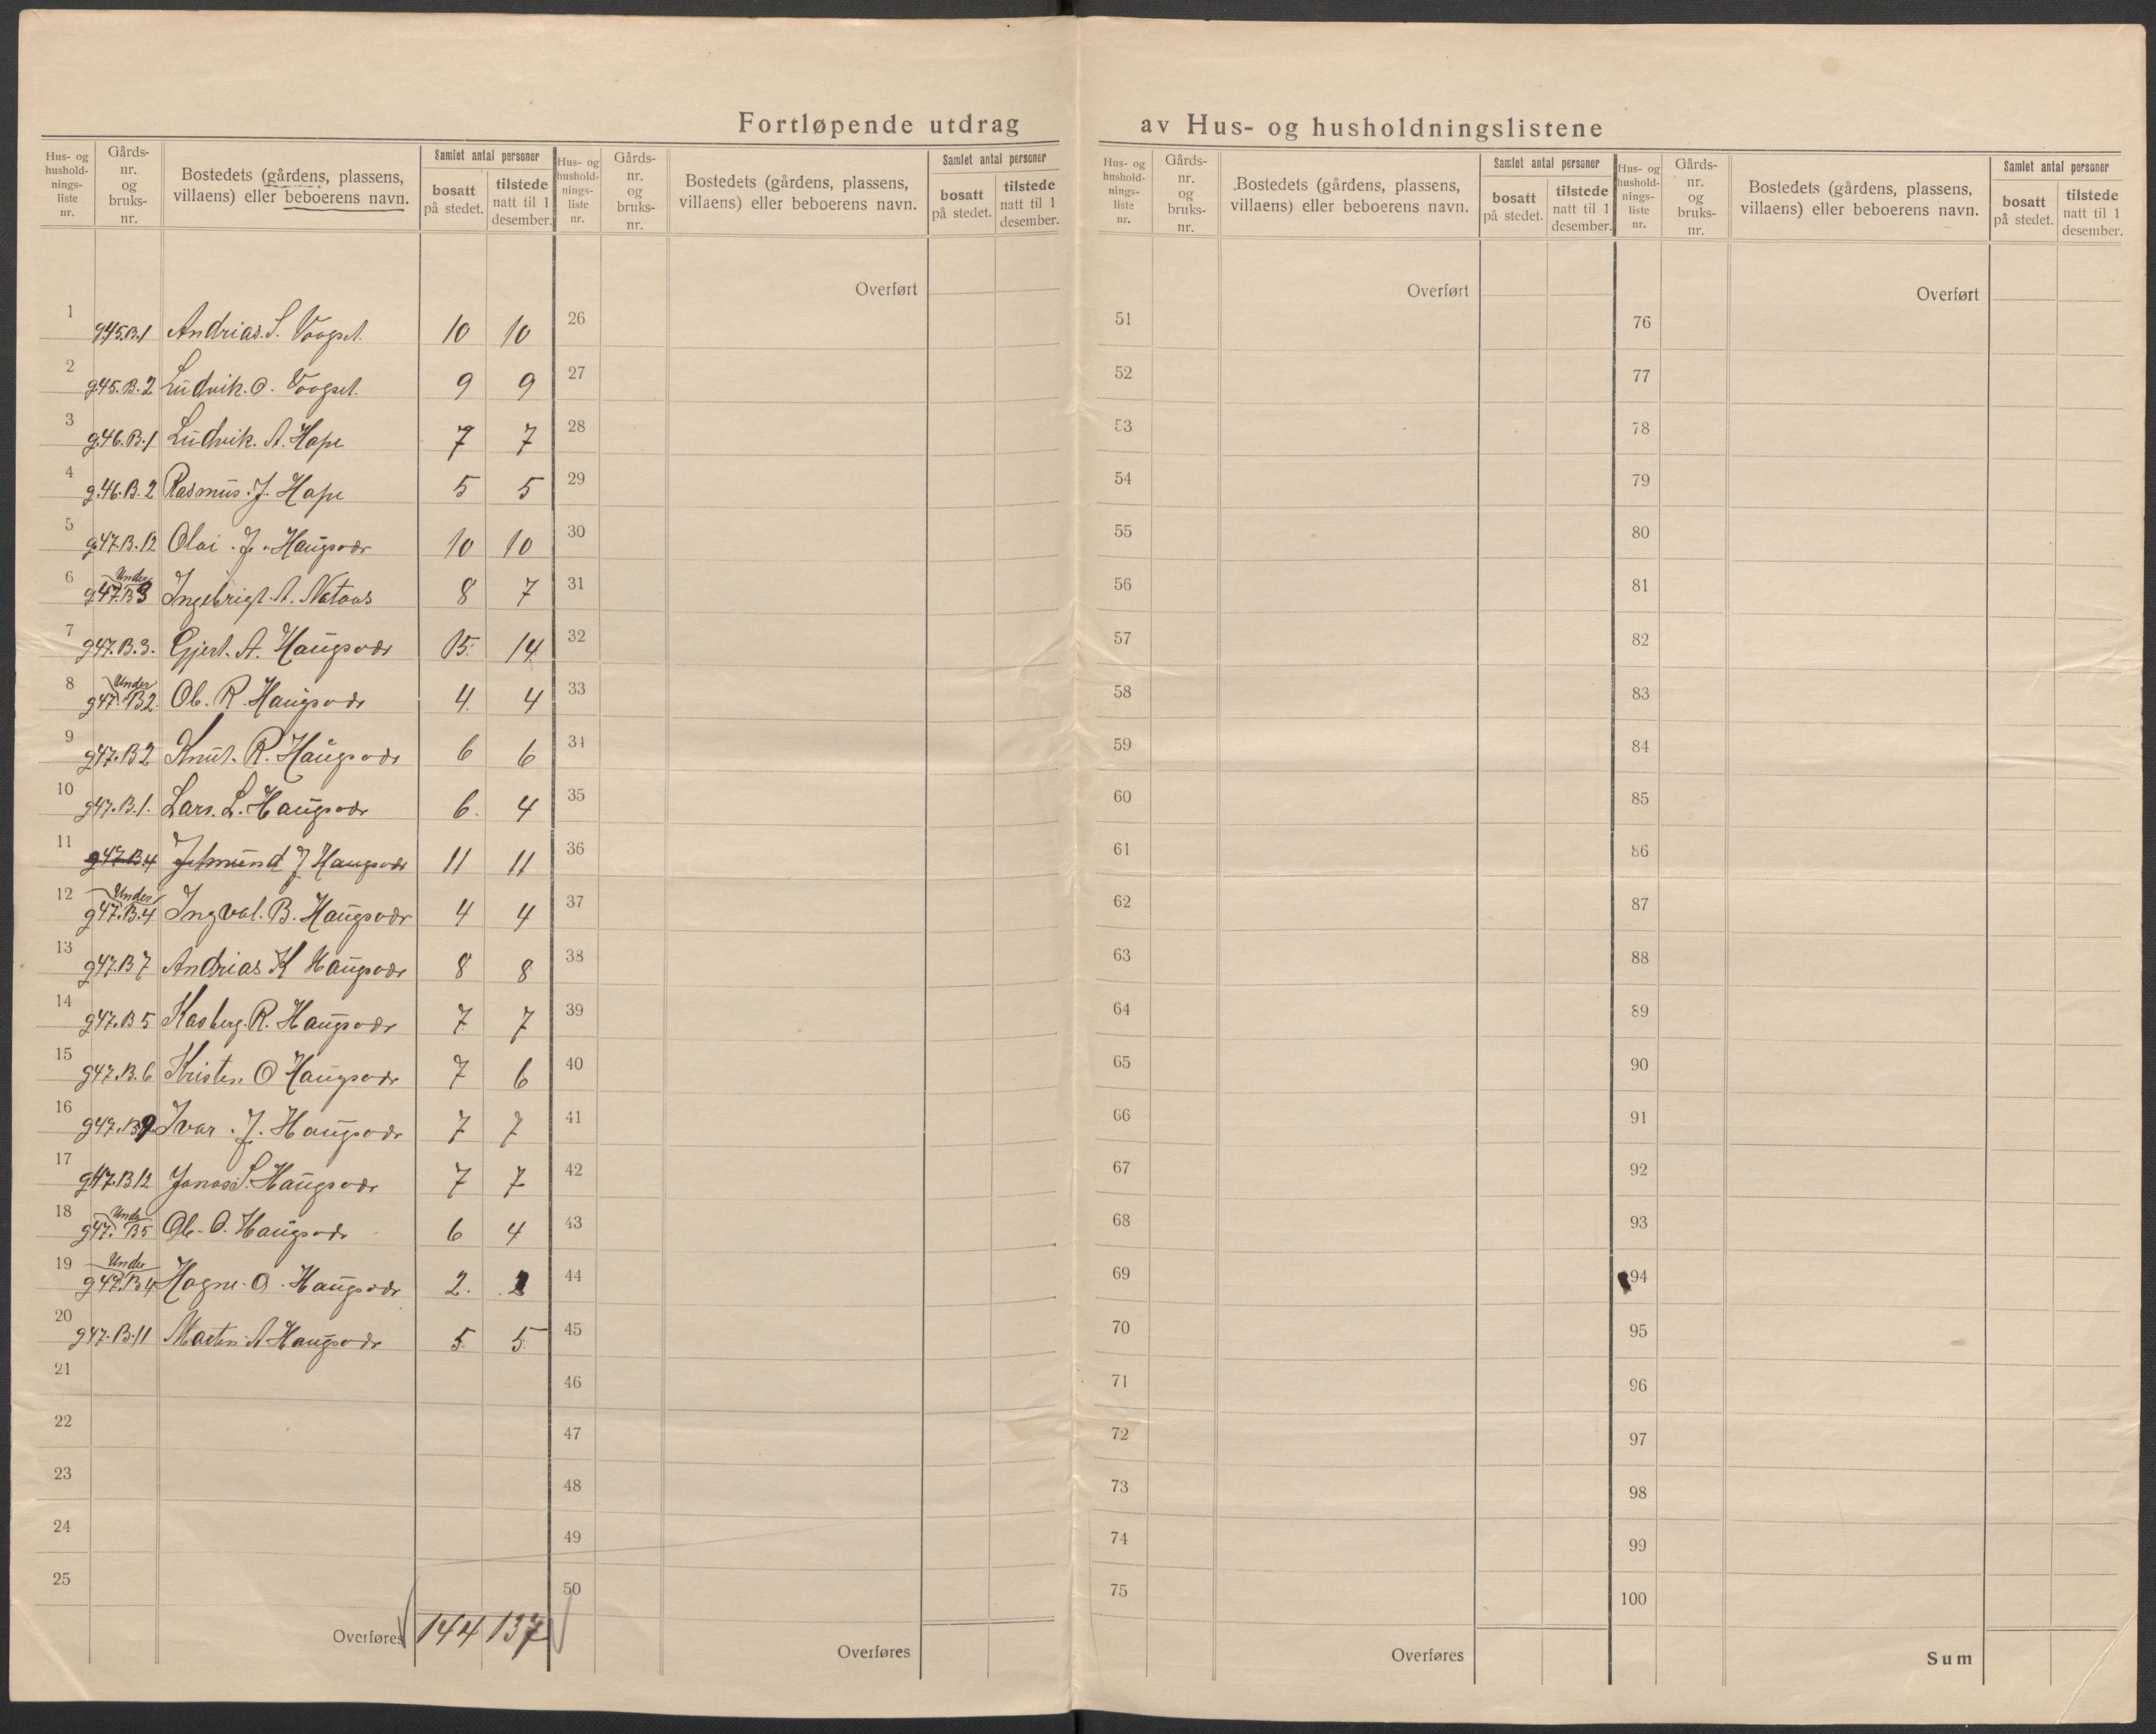 Fortløpende utdrag av Hus- og husholdningslistene
Hus- og hushold-nings-liste nr. Gårds-nr. og bruks-nr. Bostedets (gårdens, plassens, villaens) eller beboerens navn. Samlet antal personer bosatt på stedet. tilstede natt til 1 desember.
Hus- og hushold-nings-liste nr. Gårds-nr. og bruks-nr. Bostedets (gårdens, plassens, villaens) eller beboerens navn. Samlet antal personer bosatt på stedet. tilstede natt til 1 desember.
Hus- og hushold-nings-liste nr. Gårds-nr. og bruks-nr. Bostedets (gårdens, plassens, villaens) eller beboerens navn. Samlet antal personer bosatt på stedet. tilstede natt til 1 desember.
Hus- og hushold-nings-liste nr. Gårds-nr. og bruks-nr. Bostedets (gårdens, plassens, villaens) eller beboerens navn. Samlet antal personer bosatt på stedet. tilstede natt til 1 desember.
Overført Overført Overført
1 g45.B.1 Andrias. S. 10 10 26 51 76
2 g45.B.2 Ludvik. O. 9 9 27 52 77
3 g.46.B.1 Ludvik. A. Hope 7 7 28 53 78
4 g.46.B.2 Rasmus. J. Hope 5 5 29 54 79
5 g.47.B.12 Olai. J. Haugsvær 10 10 30 55 80
6 Under g47.B3 Ingebrigt. A. Nataas 8 7 31 56 81
7 g47.B.3. Gjert. A. Haugsvær 15. 14 32 57 82
8 Under g47.B2. Ol. R. Haugsvær 4. 4 33 58 83
9 g47.B2 Knut. R. Haugsvær 6 6 34 59 84
10 g47.B.1. Lars. L. Haugsvær 6. 4 35 60 85
11 g47.B4 J Haugsvær 11 11 36 61 86
12 Under g47.B.4 Ingval. B. Haugsvær 4 4 37 62 87
13 g47.B7 Andrias K Haugsvær 8 8 38 63 88
14 g47.B5 R. Haugsvær 7 7 39 64 89
15 g47.B.6 Kristen O Haugsvær 7 6 40 65 90
16 g47.B9 Ivar. J. Haugsvær 7 7 41 66 91
17 g47.B12 Jonas S. Haugsvær 7 7 42 67 92
18 Under g47.B5 Ol. O. Haugsvær 6 4 43 68 93
19 Under g47.B4 Hogne. O. Haugsvær 2. 44 69 94
20 g47.B.11 Marten A Haugsvær 5. 5. 45 70 95
21 46 71 96
22 47 72 97
23 48 73 98
24 49 74 99
25 50 75 100
Overføres 144 137 Overføres Overføres Sum